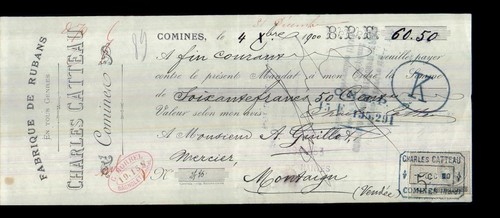 FABRIQUE DE RUBANS
EN TOUS GENRES
CHARLES CATTEAU
Comines
COMINES, le 4 Xbre 1900 B.P.F 60.50
A fin courant veuillez payer
contre le présent Mandat à mon Ordre la Somme
de Soixante francs 50 Cent
Valeur selon mon avis
A Monsieur A. Guillot
Mercier
N°
Montaigu
(Vendée)
K
CHARLES CATTEAU
COMINES